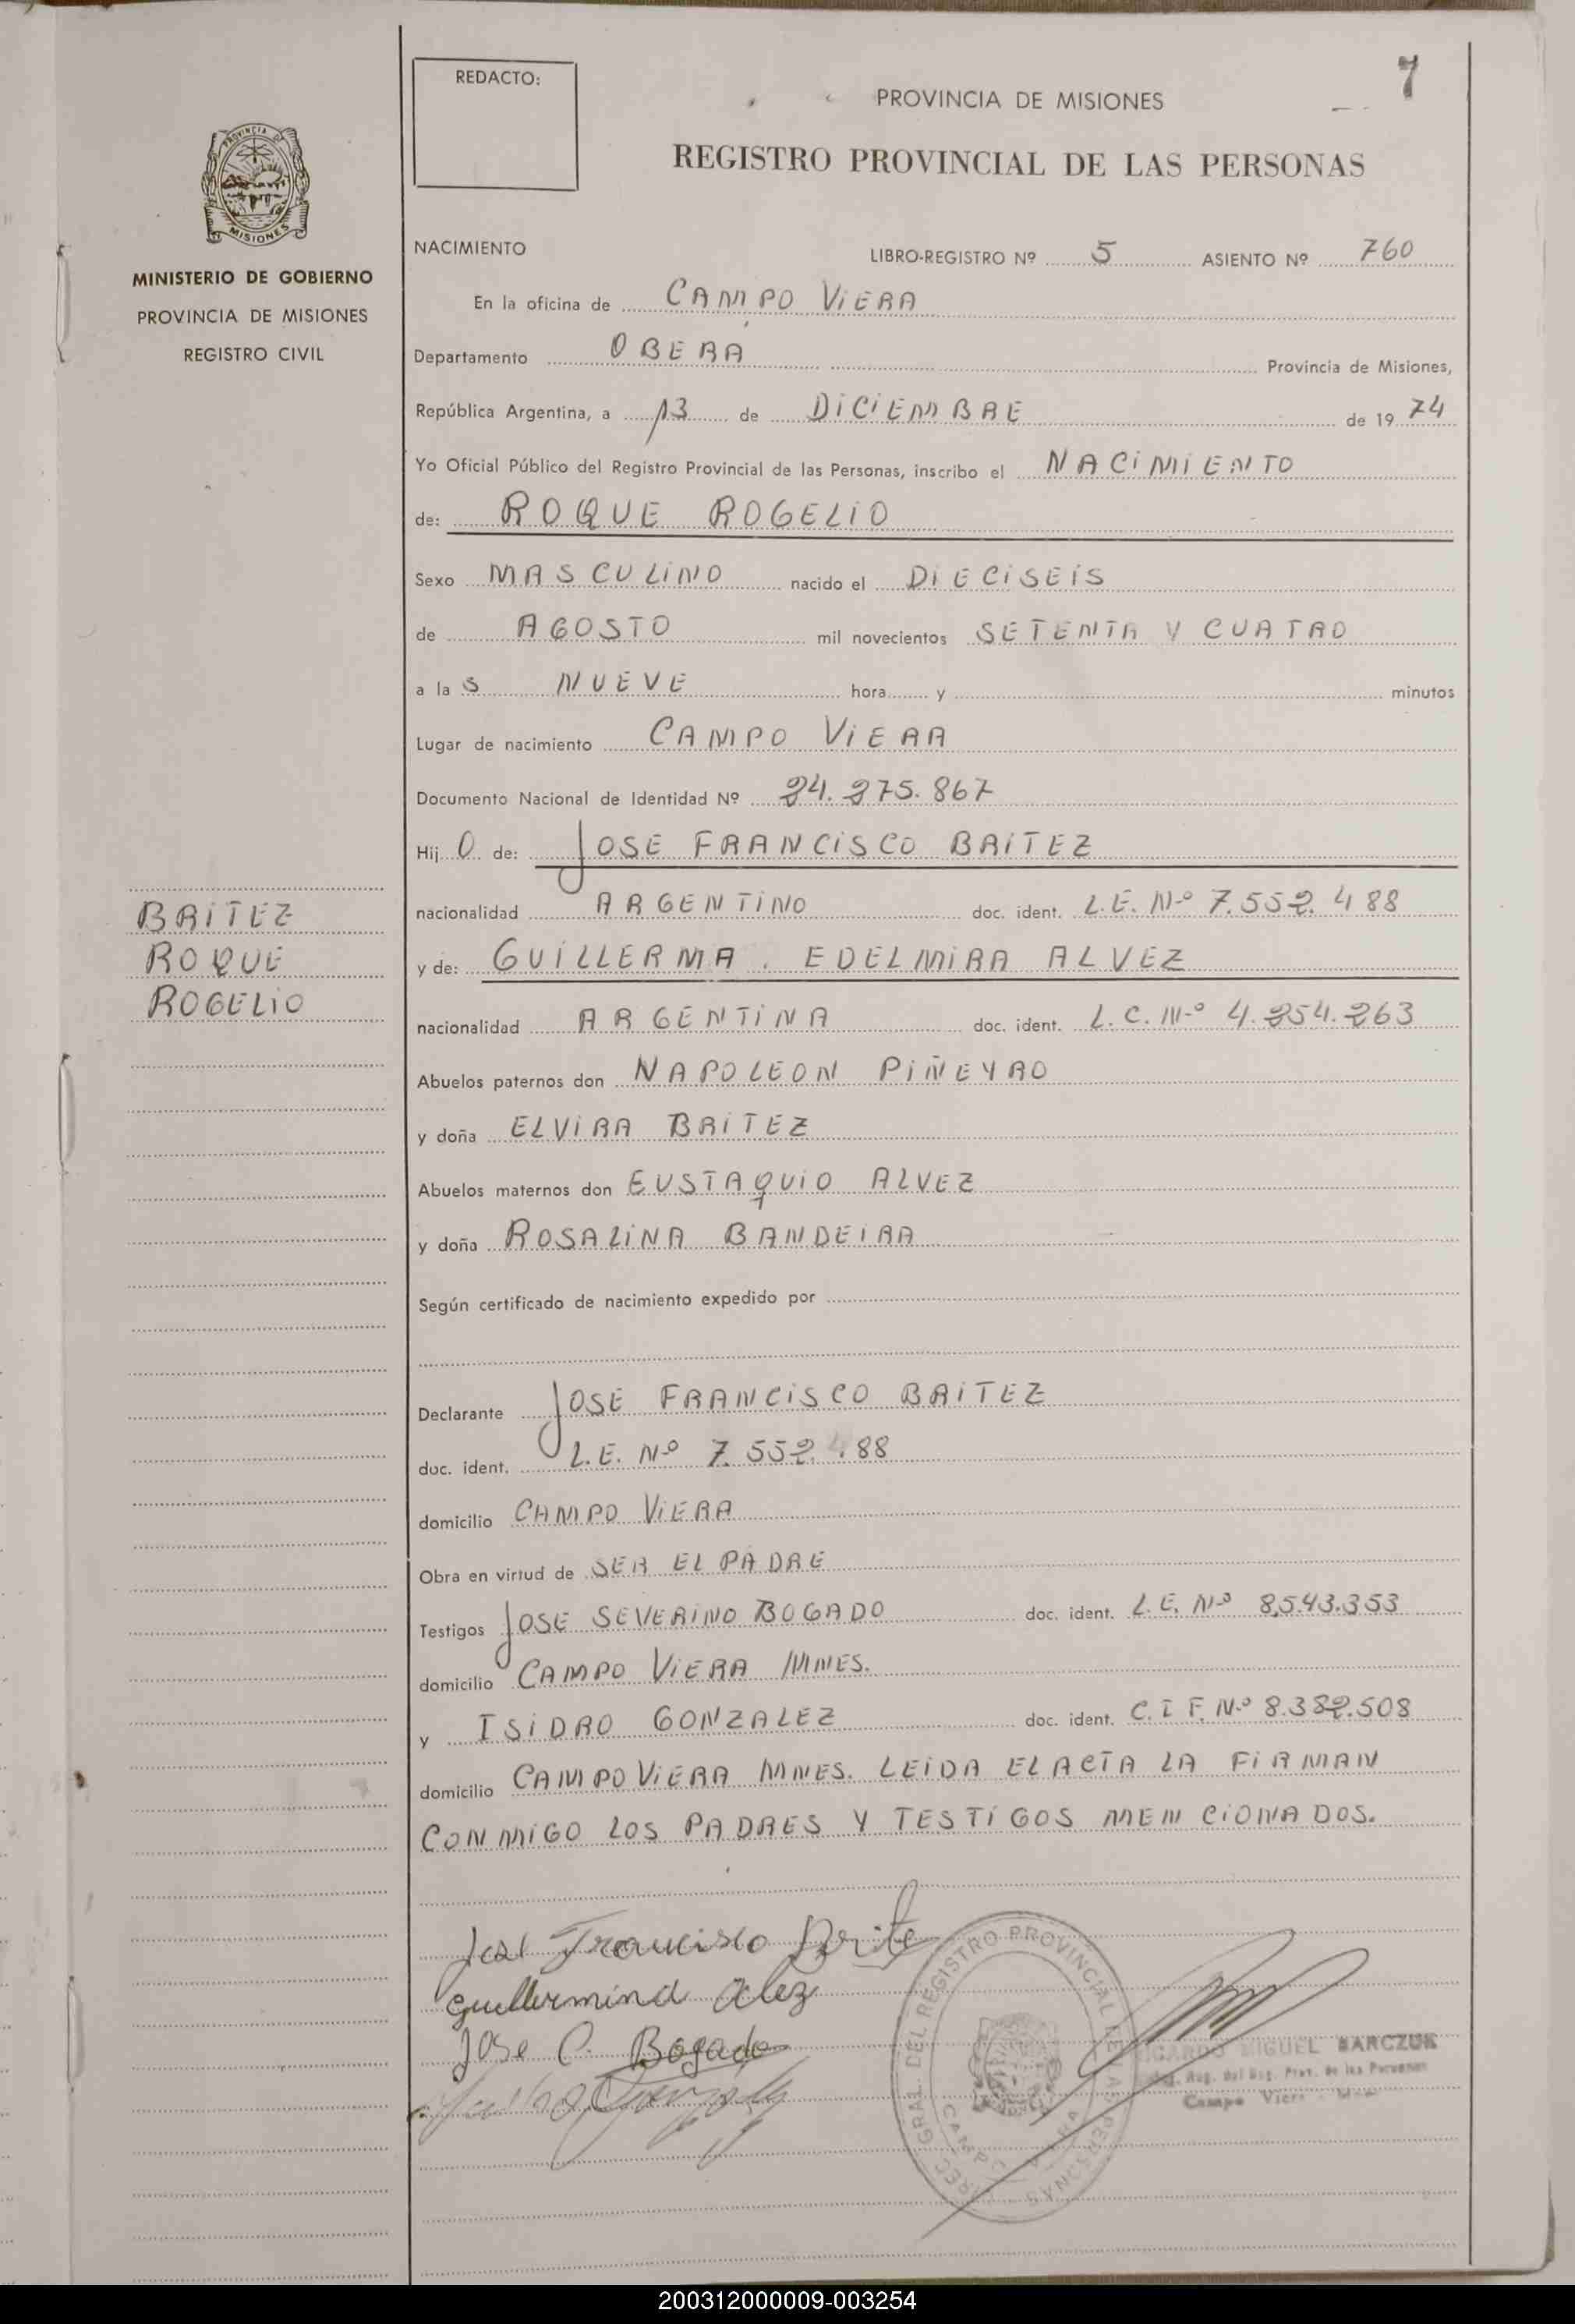 REDACTO:
7
PROVINCIA DE MISIONES
REGISTRO PROVINCIAL DE LAS PERSONAS
PROVINCIA DE
MISIONES
MINISTERIO DE GOBIERNO
PROVINCIA DE MISIONES
REGISTRO CIVIL
NACIMIENTO LIBRO-REGISTRO Nº 5 ASIENTO Nº 760
En la oficina de CAMPO VIERA
Departamento OBERA Provincia de Misiones,
República Argentina, a 13 de DICIEMBRE de 1974
Yo Oficial Público del Registro Provincial de las Personas, inscribo el NACIMIENTO
de: ROQUE ROGELIO
Sexo MASCULINO nacido el DIECISEIS
de AGOSTO mil novecientos SETENTA Y CUATRO
a las NUEVE hora y minutos
Lugar de nacimiento CAMPO VIERA
Documento Nacional de Identidad Nº 24.275.867
Hijo de: JOSE FRANCISCO BRITEZ
nacionalidad ARGENTINO doc. ident. L.E. Nº 7.552.488
y de: GUILLERMA EDELMIRA ALVEZ
nacionalidad ARGENTINA doc. ident. L.C. Nº 4.254.263
Abuelos paternos don NAPOLEON PIÑEYRO
y doña ELVIRA BRITEZ
Abuelos maternos don EUSTAQUIO ALVEZ
y doña ROSALINA BANDEIRA
Según certificado de nacimiento expedido por
BRITEZ
ROQUE
ROGELIO
Declarante JOSE FRANCISCO BRITEZ
doc. ident. L.E. Nº 7.552.488
domicilio CAMPO VIERA
Obra en virtud de SER EL PADRE
Testigos JOSE SEVERINO BOGADO doc. ident. L.E. Nº 8.543.353
domicilio CAMPO VIERA MNES.
y ISIDRO GONZALEZ doc. ident. C.I F. Nº 8.382.508
domicilio CAMPO VIERA MNES. LEIDA EL ACTA LA FIRMAN
CONMIGO LOS PADRES Y TESTIGOS MENCIONADOS.
José Francisco Brite
Guillermina Alez
Jose C. Bogado
GRAL. DEL REGISTRO PROVINCIAL DE LAS PERSONAS
MIGUEL BARCZUK
Campo Viera
200312000009-003254